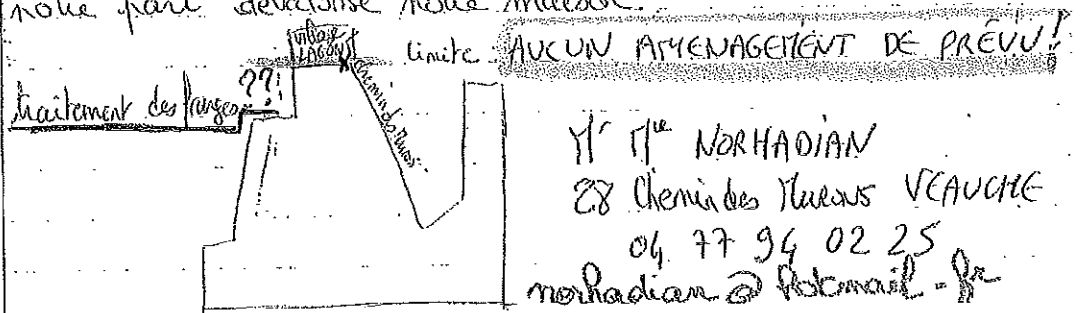 notre part dévalorise notre maison.
village LAGOUT
limite. AUCUN AMENAGEMENT DE PRÉVU!
??!
traitement des franges..
chemin des Murons.
Mr Mme NORHADIAN
28 Chemin des Murons VEAUCHE
04 77 94 02 25
norhadian@hotmail.fr